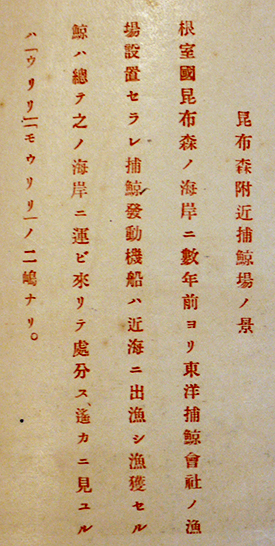 昆布森附近捕鯨場ノ景
根室國昆布森ノ海岸ニ數年前ヨリ東洋捕鯨會社ノ漁
場設置セラレ捕鯨發動機船ハ近海ニ出漁シ漁獲セル
鯨ハ總テ之ノ海岸ニ運ビ來リテ處分ス、遙カニ見ユル
ハ「ウリリ」「モウリリ」ノ二嶋ナリ。